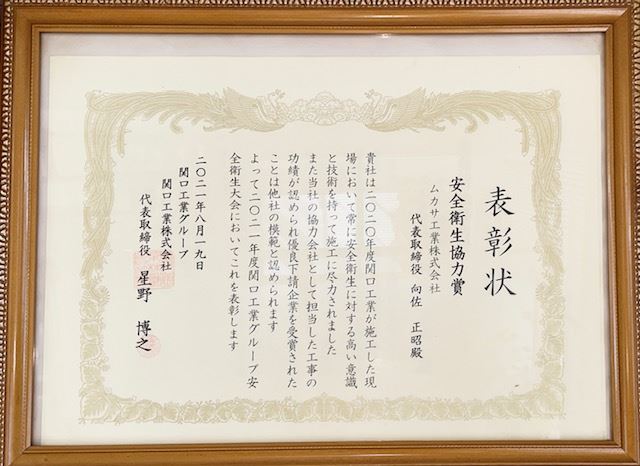 表彰状
安全衛生協力賞
ムカサ工業株式会社
代表取締役 向佐 正昭殿
貴社は二〇二〇年度関口工業が施工した現
場において常に安全衛生に対する高い意識
と技術を持って施工に尽力されました
また当社の協力会社として担当した工事の
功績が認められ優良下請企業を受賞された
ことは他社の模範と認められます
よって二〇二一年度関口工業グループ安
全衛生大会においてこれを表彰します
二〇二一年八月一九日
関口工業グループ
関口工業株式会社
代表取締役 星野 博之